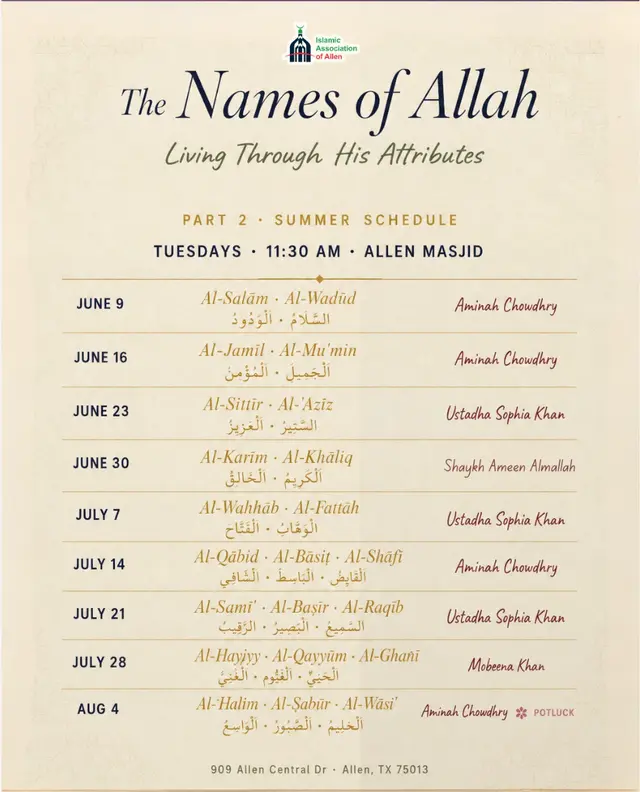 Islamic
Association
of Allen
The Names of Allah
Living Through His Attributes
PART 2 · SUMMER SCHEDULE
TUESDAYS · 11:30 AM · ALLEN MASJID
JUNE 9
Al-Salām · Al-Wadūd
السَّلَامُ · اَلْوَدُودُ
Aminah Chowdhry
JUNE 16
Al-Jamīl · Al-Mu'min
اَلْجَمِيلَ · اَلْمُؤْمِنَ
Aminah Chowdhry
JUNE 23
Al-Sittīr · Al-'Azīz
السَّتِيرُ · اَلْعَزِيزُ
Ustadha Sophia Khan
JUNE 30
Al-Karīm · Al-Khāliq
اَلْكَرِيمُ · اَلْخَالِقُ
Shaykh Ameen Almallah
JULY 7
Al-Wahhāb · Al-Fattāh
الْوَهَّابُ · الْفَتَّاح
Ustadha Sophia Khan
JULY 14
Al-Qābid · Al-Bāsiṭ · Al-Shāfī
الْقَابِضُ · الْبَاسِطَ · الْشَّافِي
Aminah Chowdhry
JULY 21
Al-Samī' · Al-Baṣīr · Al-Raqīb
السَّمِيعُ · الْبَصِيرُ · الرَّقِيبُ
Ustadha Sophia Khan
JULY 28
Al-Hayjyy · Al-Qayyūm · Al-Ghañī
الْحَيَيُّ · الْقَيُّوم · الْغَنِيَّ
Mobeena Khan
AUG 4
Al-Halim · Al-Ṣabūr · Al-Wāsi'
الْحَلِيمُ · الْصَّبُورُ · الْوَاسِعُ
Aminah Chowdhry POTLUCK
909 Allen Central Dr · Allen, TX 75013